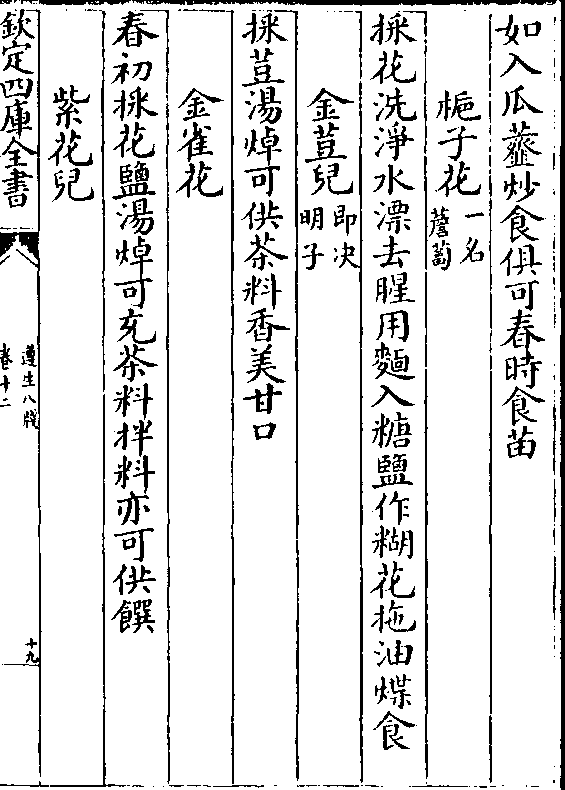 如入瓜虀炒食俱可春時食苗
梔子花一名薝蔔
採花洗淨水漂去腥用麵入糖鹽作糊花拖油煠食
金荳兒即决明子
採荳湯焯可供茶料香美甘口
金雀花
春初採花鹽湯焯可充茶料拌料亦可供饌
紫花兒
欽定四庫全書
遵生八牋
卷十二
十九